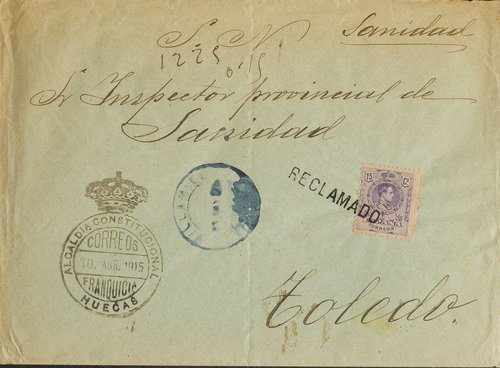 S. N.
Sanidad
1225
Sr Inspector provincial de
Sanidad
RECLAMADO
15 Cs
CORREOS
ALCALDIA CONSTITUCIONAL
CORREOS
10. ABR. 1915
FRANQUICIA
HUECAS
Toledo.